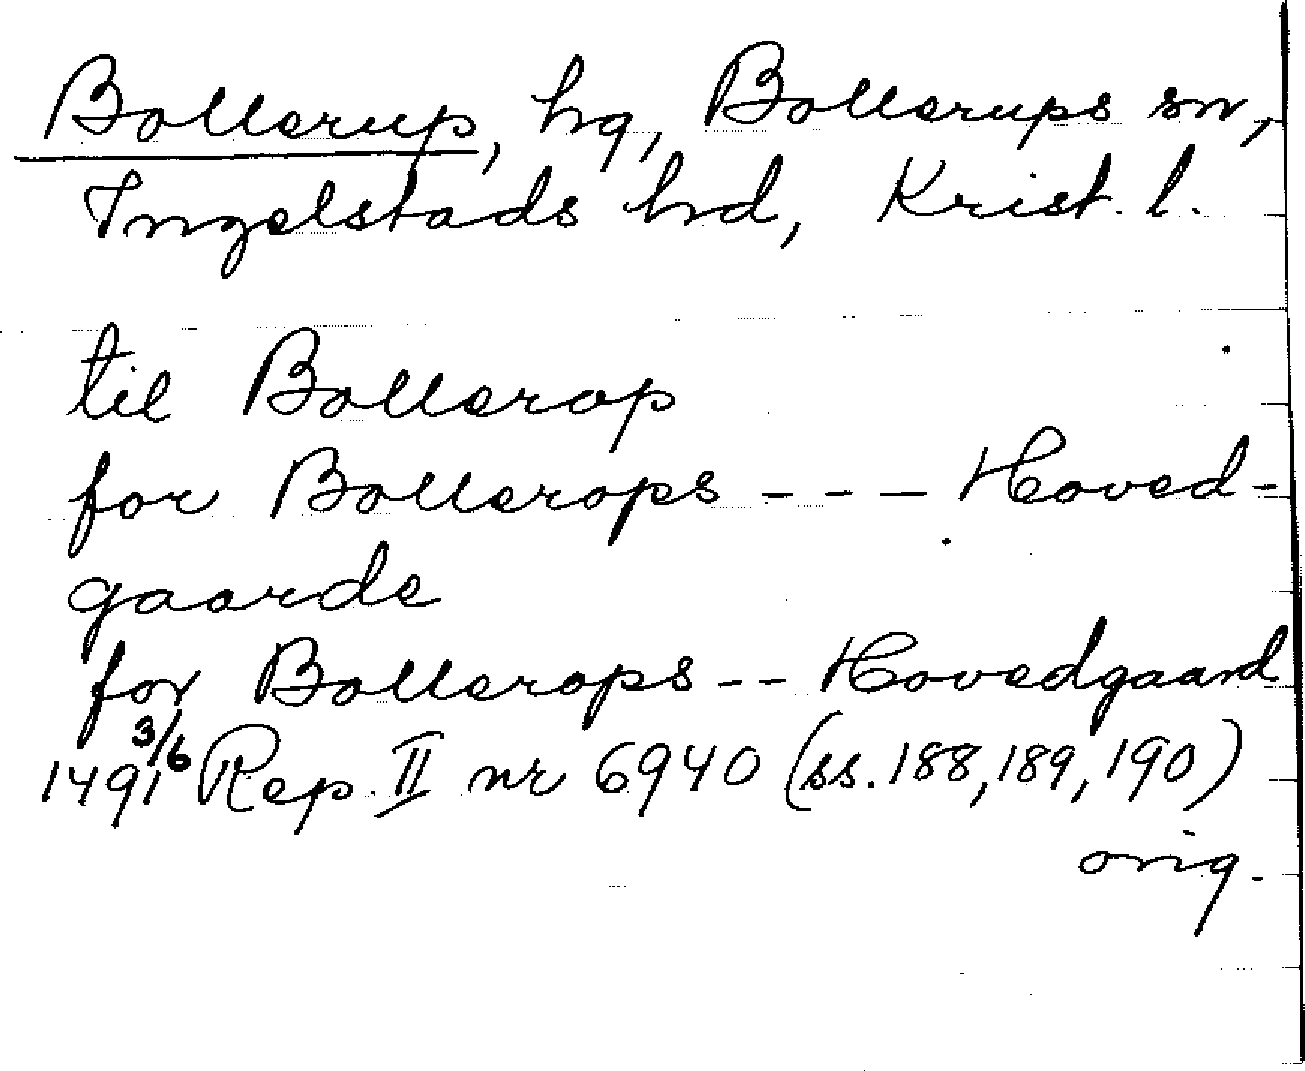 Bollerup, hg, Bollerups sn,
Ingelstads hd, Krist. l.
til Bollerop
for Bollerops - - - Hoved-
gaarde
for Bollerops - - Hovedgaard
1491 3/6 Rep. II nr 6940 (ss. 188, 189, 190)
orig.